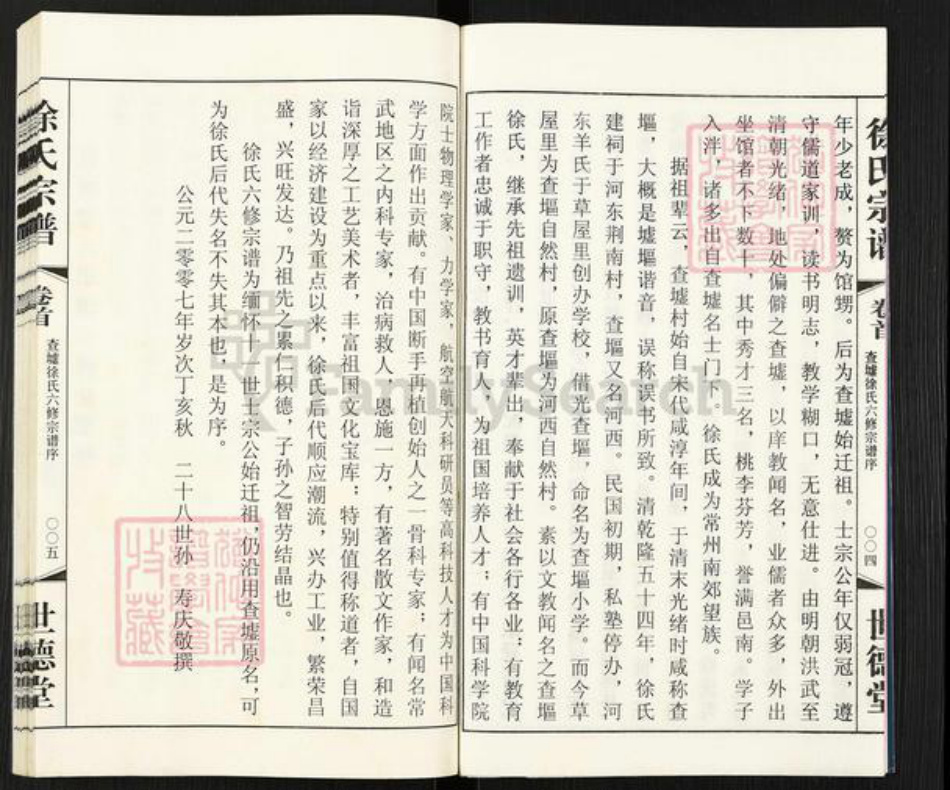 徐氏宗谱
卷首
查墟徐氏六修宗谱序
〇〇四
世德堂
年少老成，赘为馆甥。后为查墟始迁祖。士宗公年仅弱冠，遵
守儒道家训，读书明志，教学糊口，无意仕进。由明朝洪武至
清朝光绪，地处偏僻之查墟，以庠教闻名，业儒者众多，外出
坐馆者不下数十，其中秀才三名，桃李芬芳，誉满邑南。学子
入泮，诸多出自查墟名士门下。徐氏成为常州南郊望族。
据祖辈云，查墟村始自宋代咸淳年间，于清末光绪时咸称查
堰，大概是墟堰谐音，误称误书所致。清乾隆五十四年，徐氏
建祠于河东荆南村，查堰又名河西。民国初期，私塾停办，河
东羊氏于草屋里创办学校，借光查堰，命名为查堰小学。而今草
屋里为查堰自然村，原查堰为河西自然村。素以文教闻名之查堰
徐氏，继承先祖遗训，英才辈出，奉献于社会各行各业：有教育
工作者忠诚于职守，教书育人，为祖国培养人才；有中国科学院
院士物理学家、力学家，航空航天科研员等高科技人才为中国科
学方面作出贡献。有中国断手再植创始人之一骨科专家；有闻名常
武地区之内科专家，治病救人，恩施一方，有著名散文作家，和造
诣深厚之工艺美术者，丰富祖国文化宝库；特别值得称道者，自国
家以经济建设为重点以来，徐氏后代顺应潮流，兴办工业，繁荣昌
盛，兴旺发达。乃祖先之累仁积德，子孙之智劳结晶也。
徐氏六修宗谱为缅怀十一世士宗公始迁祖，仍沿用查墟原名，可
为徐氏后代失名不失其本也，是为序。
公元二零零七年岁次丁亥秋 二十八世孙 寿庆敬撰
徐氏宗谱
卷首
查墟徐氏六修宗谱序
〇〇五
世德堂
FamilySearch